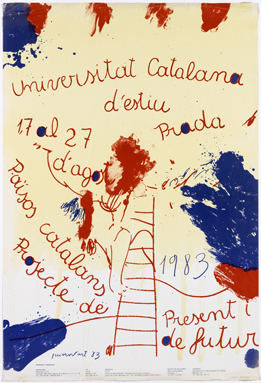 Universitat Catalana
d'estiu
17 al 27
d'agost
Prada
Països catalans
Projecte de
1983
Present i
de futur
guinovart 83